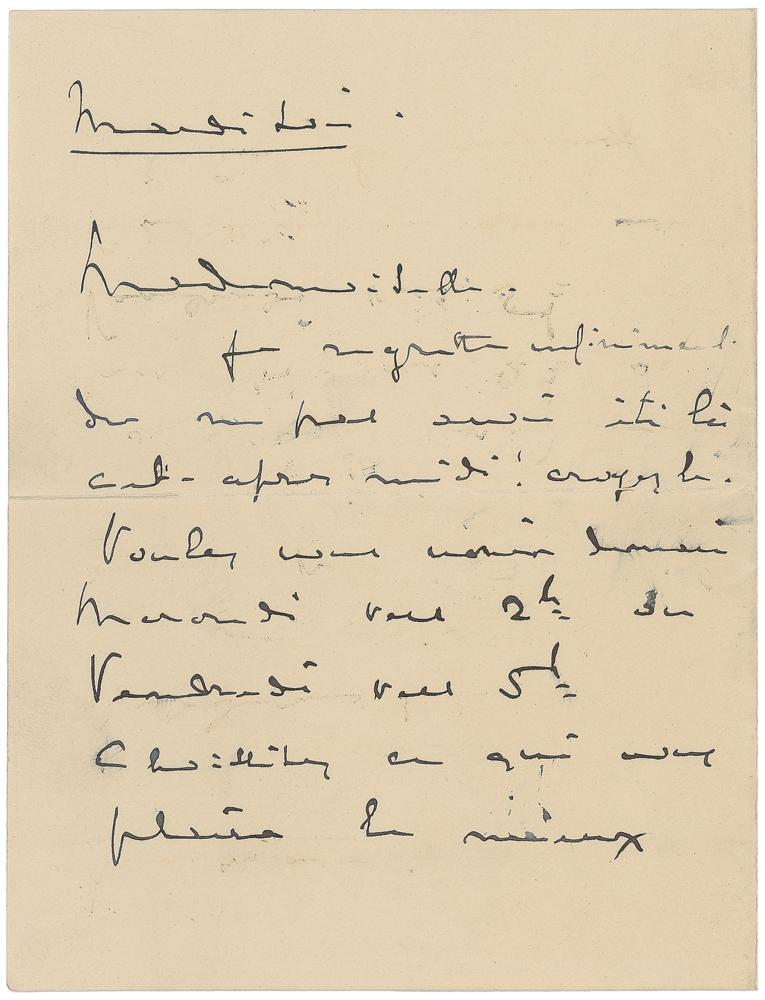 Mardi soir.
Mademoiselle.
Je regrette infiniment
de ne pas avoir été là
cet après midi! croyez le.
Voulez vous venir demain
Mercredi vers 2h ou
Vendredi vers 5h
Choisissez ce qui vous
plaira le mieux